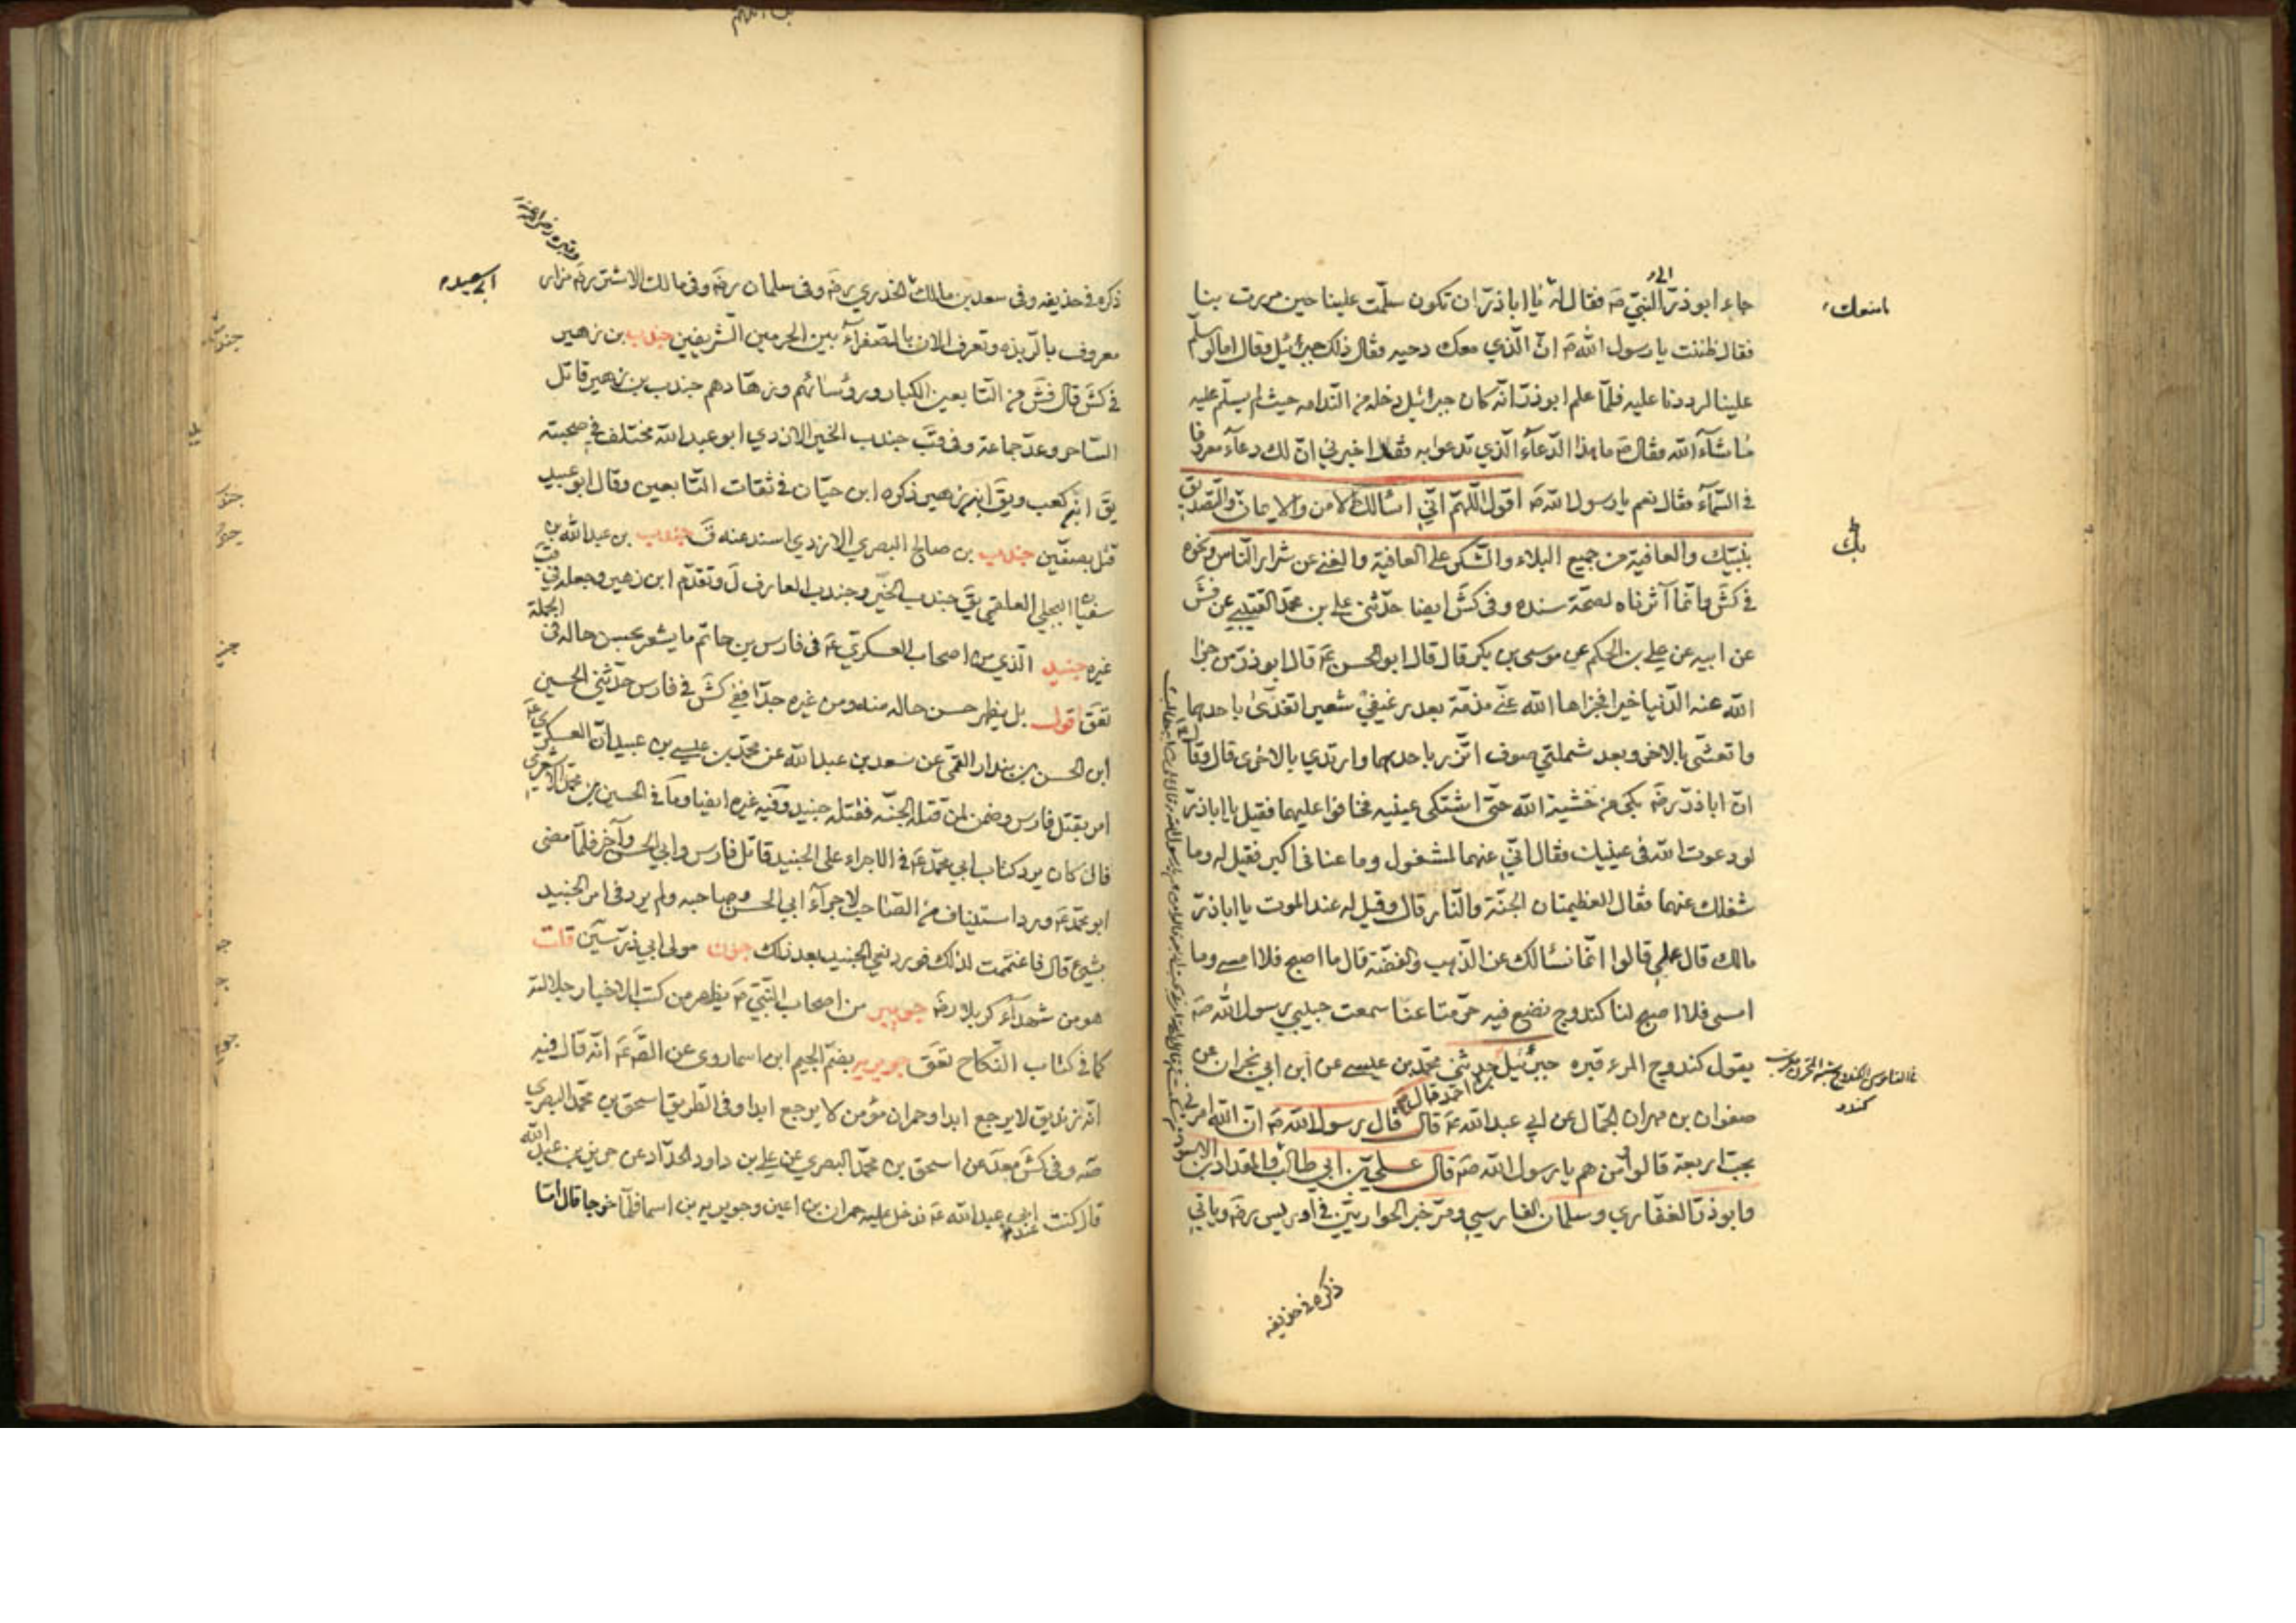 جاء ابوذر الى النبي صه فقال له يا اباذر ان تكون سلمت علينا حين مررت بنا
فقال ظننت يا رسول الله صه ان الذي معك دحيه فقال ذلك جبرئيل وقال اما لو سلم
علينا لرددنا عليه فلما علم ابوذر انه كان جبرائيل دخله من الندامه حيث لم يسلم عليه
ماشاء الله فقال صه ما هذا الدعاء الذي تدعو به فقد اخبرني ان لك دعاء معروفا
في السماء فقال نعم يا رسول الله صه اقول اللهم اني اسالك الامن والايمان والتصديق
بنبيك والعافية من جميع البلاء والشكر على العافية والغنى عن شرار الناس ونحوه
في كش وانما آثرناه لصحة سنده وفى كش ايضا حدثنى على بن محمد القتيبي عن فش
عن ابيه عن علي بن الحكم عن موسى بن بكر قال قال ابو الحسن عه قال ابوذر من جزا
الله عنه الدنيا خيرا فجزاها الله عني مذمة بعد رغيفي شعير اتغدى باحدهما
واتعشى بالاخر وبعد شملتي صوف اتزر باحدهما وارتدي بالاخرى قال وقال
ان اباذر رضه بكى من خشية الله حتى اشتكى عينيه فخافوا عليهما فقيل يا اباذر
لو دعوت الله في عينيك فقال اني عنهما لمشغول وما عناني اكبر فقيل له وما
شغلك عنهما فقال العظيمتان الجنة والنار قال وقيل له عند الموت يا اباذر
مالك قال علمي قالوا انما نسالك عن الذهب والفضة قال ما اصبح فلا امسي وما
امسى فلا اصبح لنا كندوج نضع فيه حر متاعنا سمعت حبيبي رسول الله صه
يقول كندوج المرء قبره جبرئيل بن احمد قال حدثنى محمد بن عيسى عن ابن ابي نجران عن
صفوان بن مهران الجمال عن ابي عبدالله عه قال قال رسول الله صه ان الله امرني
بحب اربعة قالوا ومن هم يا رسول الله صه قال علي بن ابي طالب والمقداد بن الاسود
وابوذر الغفاري وسلمان الفارسي ومر خبر الحواريين في اويس رضه وياتي
ذكره في حذيفه
ذكره في حذيفه وفى سعد بن مالك الخدري رضه وفى سلمان رضه وفى مالك الاشتر رضه مزار
وقبره رضى الله عنه
معروف بالربذه وتعرف الان بالصفراء بين الحرمين الشريفين جندب بن زهير
في كش قال فش من التابعين الكبار ورؤسائهم وزهادهم جندب بن زهير قاتل
الساحر وعد جماعة وفى قب جندب الخير الازدي ابو عبد الله مختلف في صحبته
يق ابن كعب ويق ابن زهير ذكره ابن حيان في ثقات التابعين وقال ابو عبيد
قتل بصفين جندب بن صالح البصري الازدي اسند عنه ق جندب بن عبدالله بن
سفيان البجلي العلقمي يق جندب الخير وجندب العارف ل وتقدم ابن زهير وجعله في قب
غيره جنيد الذي من اصحاب العسكري عه فى فارس بن حاتم ما يشعر بحسن حاله فى الجملة
تعق اقول بل يظهر حسن حاله منه ومن غيره جدا ففي كش في فارس حدثني الحسين
ابن الحسن بن بندار القمي عن سعد بن عبد الله عن محمد بن عيسى بن عبيد ان العسكري عه
امر بقتل فارس وضمن لمن قتله الجنه فقتله جنيد وفيه غيره ايضا ومر في الحسين بن محمد الاشعري
قال كان يرد كتاب ابي محمد عه في الاجراء على الجنيد قاتل فارس وابي الحسن وآخر فلما مضى
ابو محمد عه ورد استيناف من الصاحب لاجراء ابي الحسن وصاحبه ولم يرد في امر الجنيد
بشيء قال فاغتممت لذلك فورد نعي الجنيد بعد ذلك جون مولى ابي ذر سين قلت
هو من شهداء كربلا رضه جويبر من اصحاب النبي صه يظهر من كتب الاخيار جلالته
كما في كتاب النكاح تعق جويريه بضم الجيم ابن اسما روى عن الصه عه انه قال فيه
انه زنديق لا يرجع ابدا وحمران مؤمن لا يرجع ابدا وفى الطريق اسحق بن محمد البصري
صه وفى كش معلا عن اسحق بن محمد البصري عن علي بن داود الحداد عن حريز بن عبد الله
قال كنت عند ابي عبد الله عه فدخل عليه حمران بن اعين وجويريه بن اسما فلما خرجا قال اما